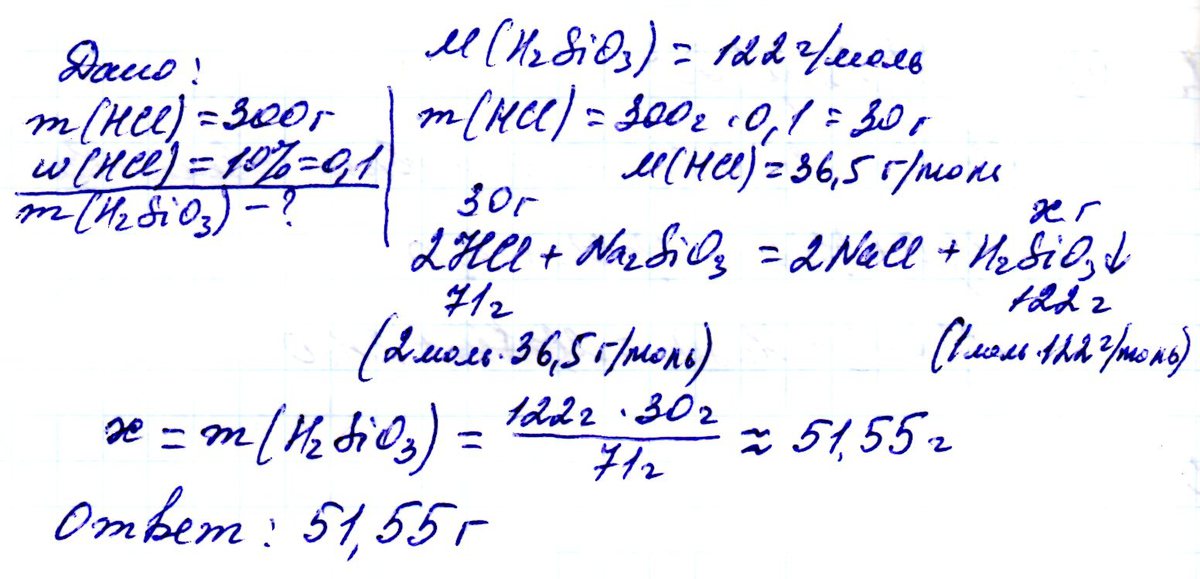 Дано:
m(HCl) = 300г
w(HCl) = 10% = 0,1
m(H₂SiO₃) - ?
M(H₂SiO₃) = 122 г/моль
m(HCl) = 300г · 0,1 = 30г
M(HCl) = 36,5 г/моль
30г x г
2HCl + Na₂SiO₃ = 2NaCl + H₂SiO₃↓
71г 122г
(2моль · 36,5 г/моль) (1моль · 122 г/моль)
x = m(H₂SiO₃) = 122г · 30г / 71г ≈ 51,55 г
Ответ: 51,55 г